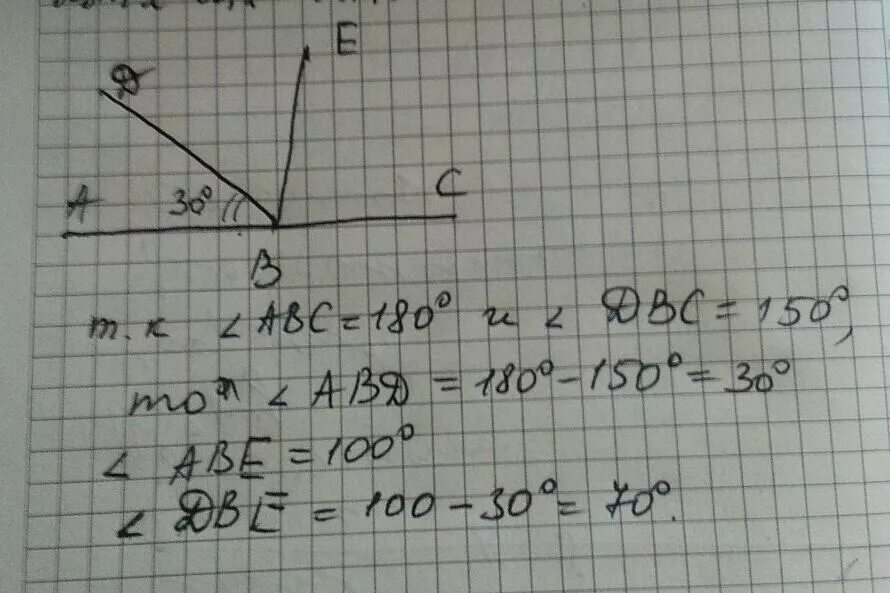 E
D
A 30° C
B
т.к ∠ABC = 180° и ∠ DBC = 150°,
то ∠ ABD = 180° - 150° = 30°
∠ ABE = 100°
∠ DBE = 100 - 30° = 70°.